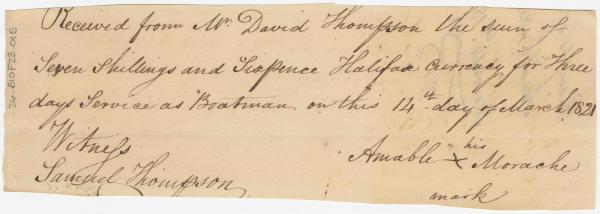 Received from Mr. David Thompson the sum of
Seven Shillings and Sixpence Halifax Currency for Three
days Service as Boatman on this 14th day of March 1821
Witness
Amable his x mark Morache
Samuel Thompson